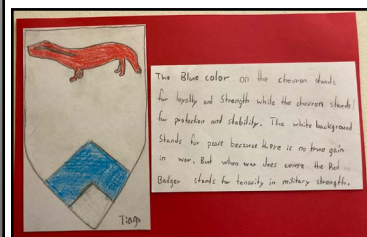 The Blue color on the chevron stands
for loyalty and Strength while the chevron stands
for protection and stability. The white background
Stands for peace because there is no true gain
in war. But when war does come the Red
Badger stands for tenacity in military strength.
Tiago